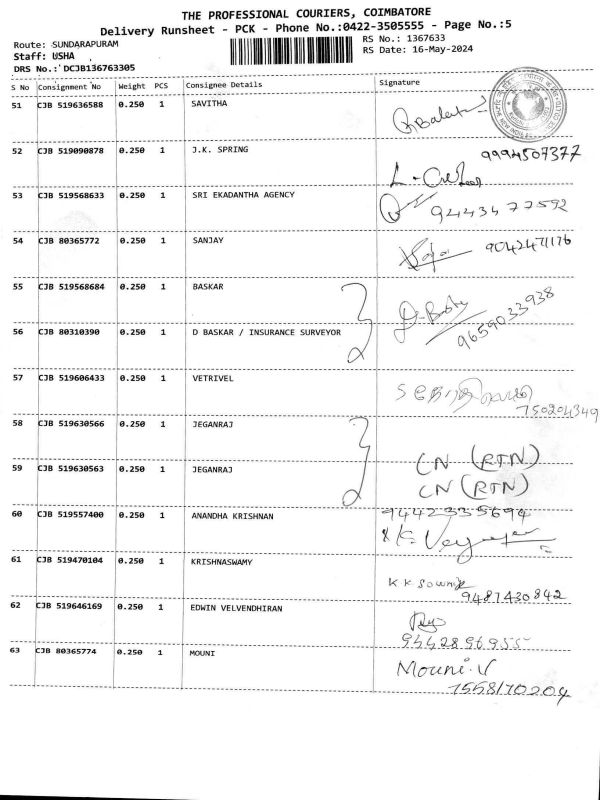 THE PROFESSIONAL COURIERS, COIMBATORE
Delivery Runsheet - PCK - Phone No.:0422-3505555 - Page No.:5
Route: SUNDARAPURAM
RS No.: 1367633
Staff: USHA
RS Date: 16-May-2024
DRS No.: DCJB136763305
S No Consignment No Weight PCS Consignee Details Signature
51 CJB 519636588 0.250 1 SAVITHA
52 CJB 519090878 0.250 1 J.K. SPRING 9994507377
53 CJB 519568633 0.250 1 SRI EKADANTHA AGENCY 9443477592
54 CJB 80365772 0.250 1 SANJAY 9042471176
55 CJB 519568684 0.250 1 BASKAR
56 CJB 80310390 0.250 1 D BASKAR / INSURANCE SURVEYOR 9659033938
57 CJB 519606433 0.250 1 VETRIVEL
750204349
58 CJB 519630566 0.250 1 JEGANRAJ CN (RTN)
59 CJB 519630563 0.250 1 JEGANRAJ CN (RTN)
60 CJB 519557400 0.250 1 ANANDHA KRISHNAN 9442335694
61 CJB 519470104 0.250 1 KRISHNASWAMY
9487430842
62 CJB 519646169 0.250 1 EDWIN VELVENDHIRAN
9442896955
63 CJB 80365774 0.250 1 MOUNI Mouni.V
7558170204